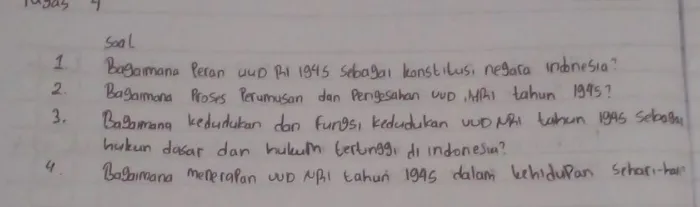 Tugas 4
Soal
1. Bagaimana Peran UUD RI 1945 sebagai konstitusi negara indonesia?
2. Bagaimana Proses Perumusan dan Pengesahan UUD NRI tahun 1945?
3. Bagaimana kedudukan dan fungsi kedudukan UUD NRI tahun 1945 sebagai
hukun dasar dan hukum tertinggi di indonesia?
4. Bagaimana menerapan UUD NRI tahun 1945 dalam kehidupan sehari-hari